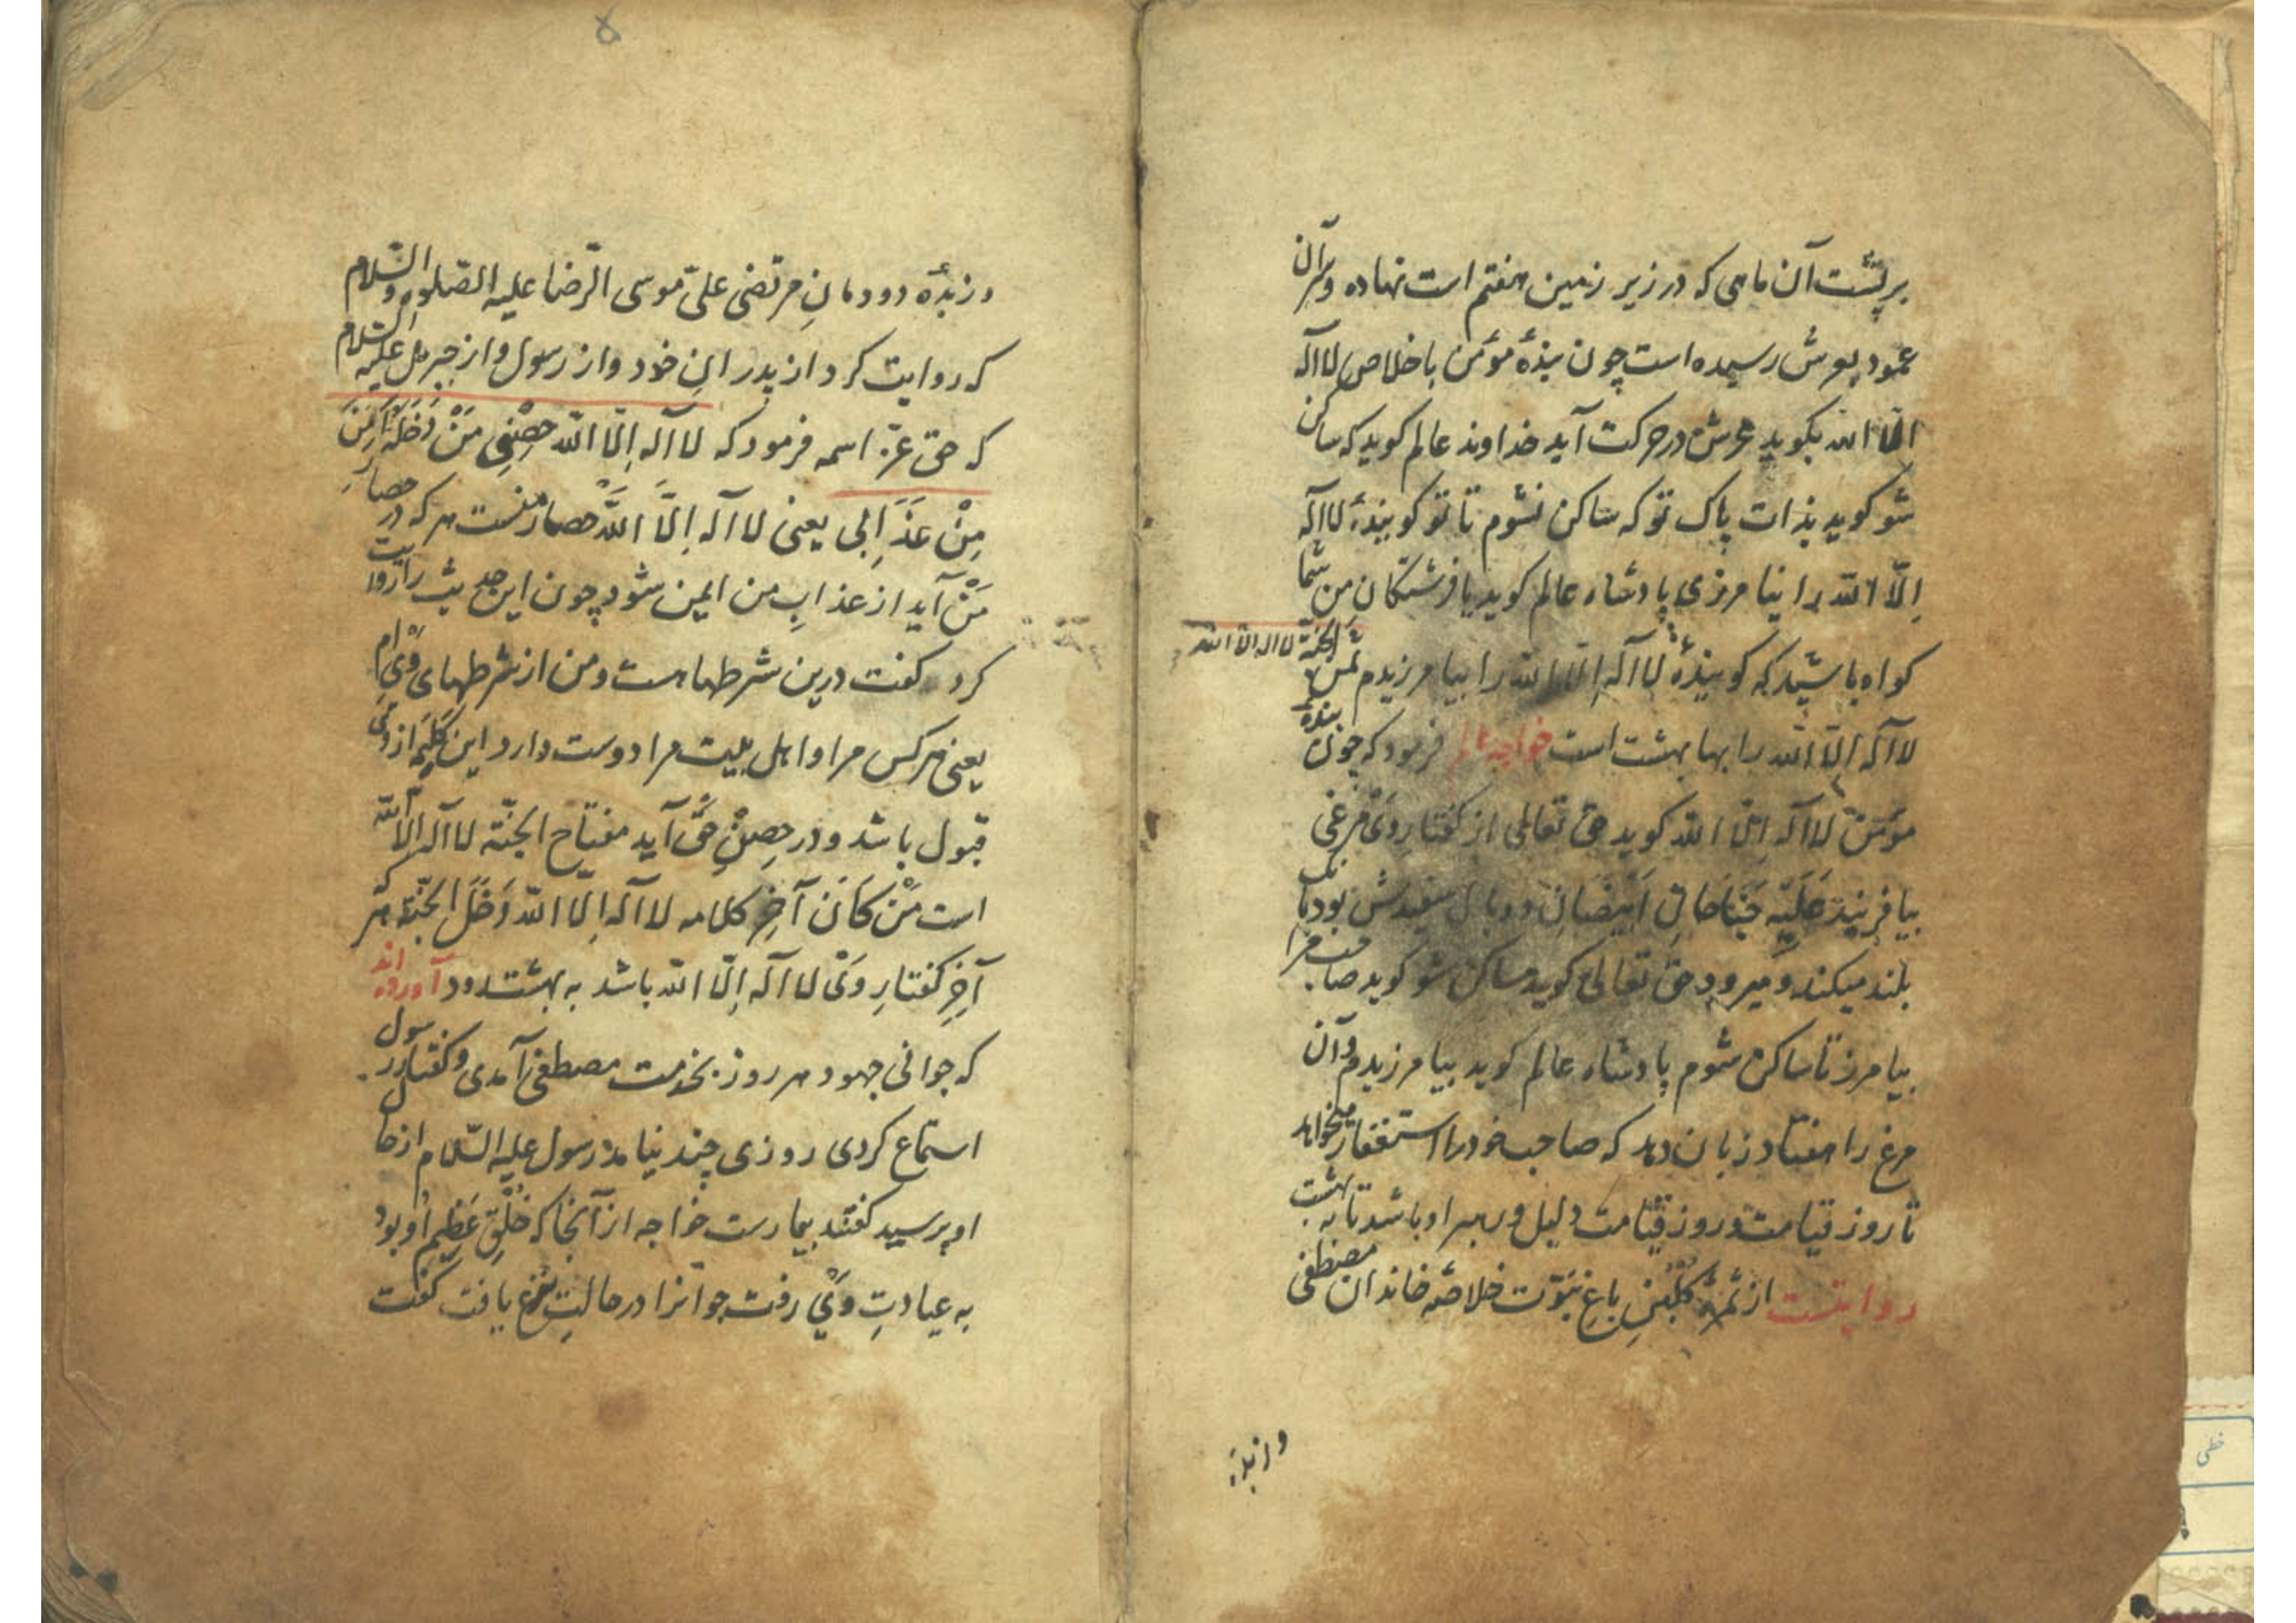 بر پشت آن ماهی که در زیر زمین هفتم است نهاده و سر آن
عمود بعرش رسیده است چون بندهٔ مؤمن باخلاص لا اله
الا الله بگوید عرش در حرکت آید خداوند عالم کوید که ساکن
شو کوید بذات پاک تو که ساکن نشوم تا تو کویندهٔ لا اله
اِلّا الله را نیامرزی پادشاه عالم کوید یا فرشتکانِ من شما
کواه باشید که کویندهٔ لا اله اِلّا الله را بیامرزیدم ثمن الجنّة لا اله الا الله
لا اله اِلّا الله را بها بهشت است خواجه عالم فرمود که چون بندهٔ
مؤمن لا اله اِلّا الله کوید حق تعالی از کفتارِ وَی مرغی
بیافریند جَنَاحَانِ اَبْیَضَانِ دو بال سفیدش بود
بلند میکند و میرود حق تعالی کوید ساکن شو کوید صاحب مرا
بیامرز تا ساکن شوم پادشاه عالم کوید بیامرزیدم و آن
مرغ را هفتاد زبان دهد که صاحب خود را استغفار میخواهد
تا روز قیامت و روز قیامت دلیل و رهبر او باشد تا به بهشت
روایتست از ثمرهٔ کلبنِ باغِ نبوّت خلاصهٔ خاندان مصطفی
و زبدهٔ
و زبدهٔ دودمانِ مرتضی علیّ موسی الرّضا علیه الصّلوة و السّلام
که روایت کرد از پدرانِ خود و از رسول و از جبرئیل علیه السّلام
که حق عزّ اسمه فرمود که لا اله اِلّا الله حِصْنِی مَنْ دَخَلَهُ اَمِنَ
مِنْ عَذَابِی یعنی لا اله اِلَّا اللهُ حصار منست هر که در حصارِ
مَنْ آید از عذابِ من ایمن شود چون این حدیث را روایت
کرد کفت درین شرطها هست و من از شرطهای وَیْ ام
یعنی هر کس مرا و اهل بیت مرا دوست دارد این کلمه از وَی
قبول باشد و در حِصْنِ حقّ آید مفتاح الجنّة لا اله الّا الله
است مَنْ کَانَ آخِر کلامه لا اله اِلّا الله دَخَلَ الجنّة هر که
آخِرِ کفتارِ وَی لا اله اِلّا الله باشد به بهشت رود آورده اند
که جوانی جهود هر روز بخدمت مصطفی آمدی و کفتار رسول
استماع کردی روزی چند نیامد رسول علیه السّلام از حال
او پرسید کفتند بیمارست خواجه از آنجا که خُلْقِ عَظِیمِ او بود
به عیادتِ وَیْ رفت جوانرا در حالتِ نزع یافت کفت
خطی